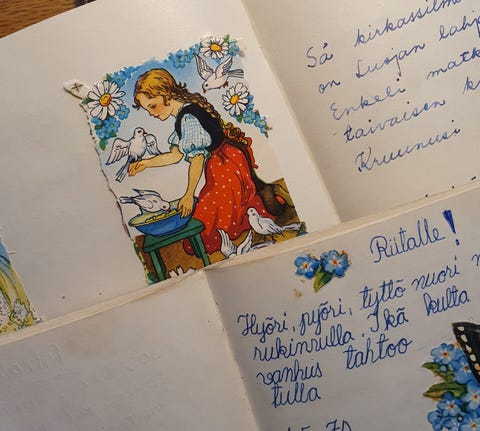 Sä kirkassilmä
on Luojan lahj
Enkeli matk
taivaisen k
Kruunusi
Riitalle!
Hyöri, pyöri, tyttö nuori n
rukinrulla. Ikä kulta
vanhus tahtoo
tulla